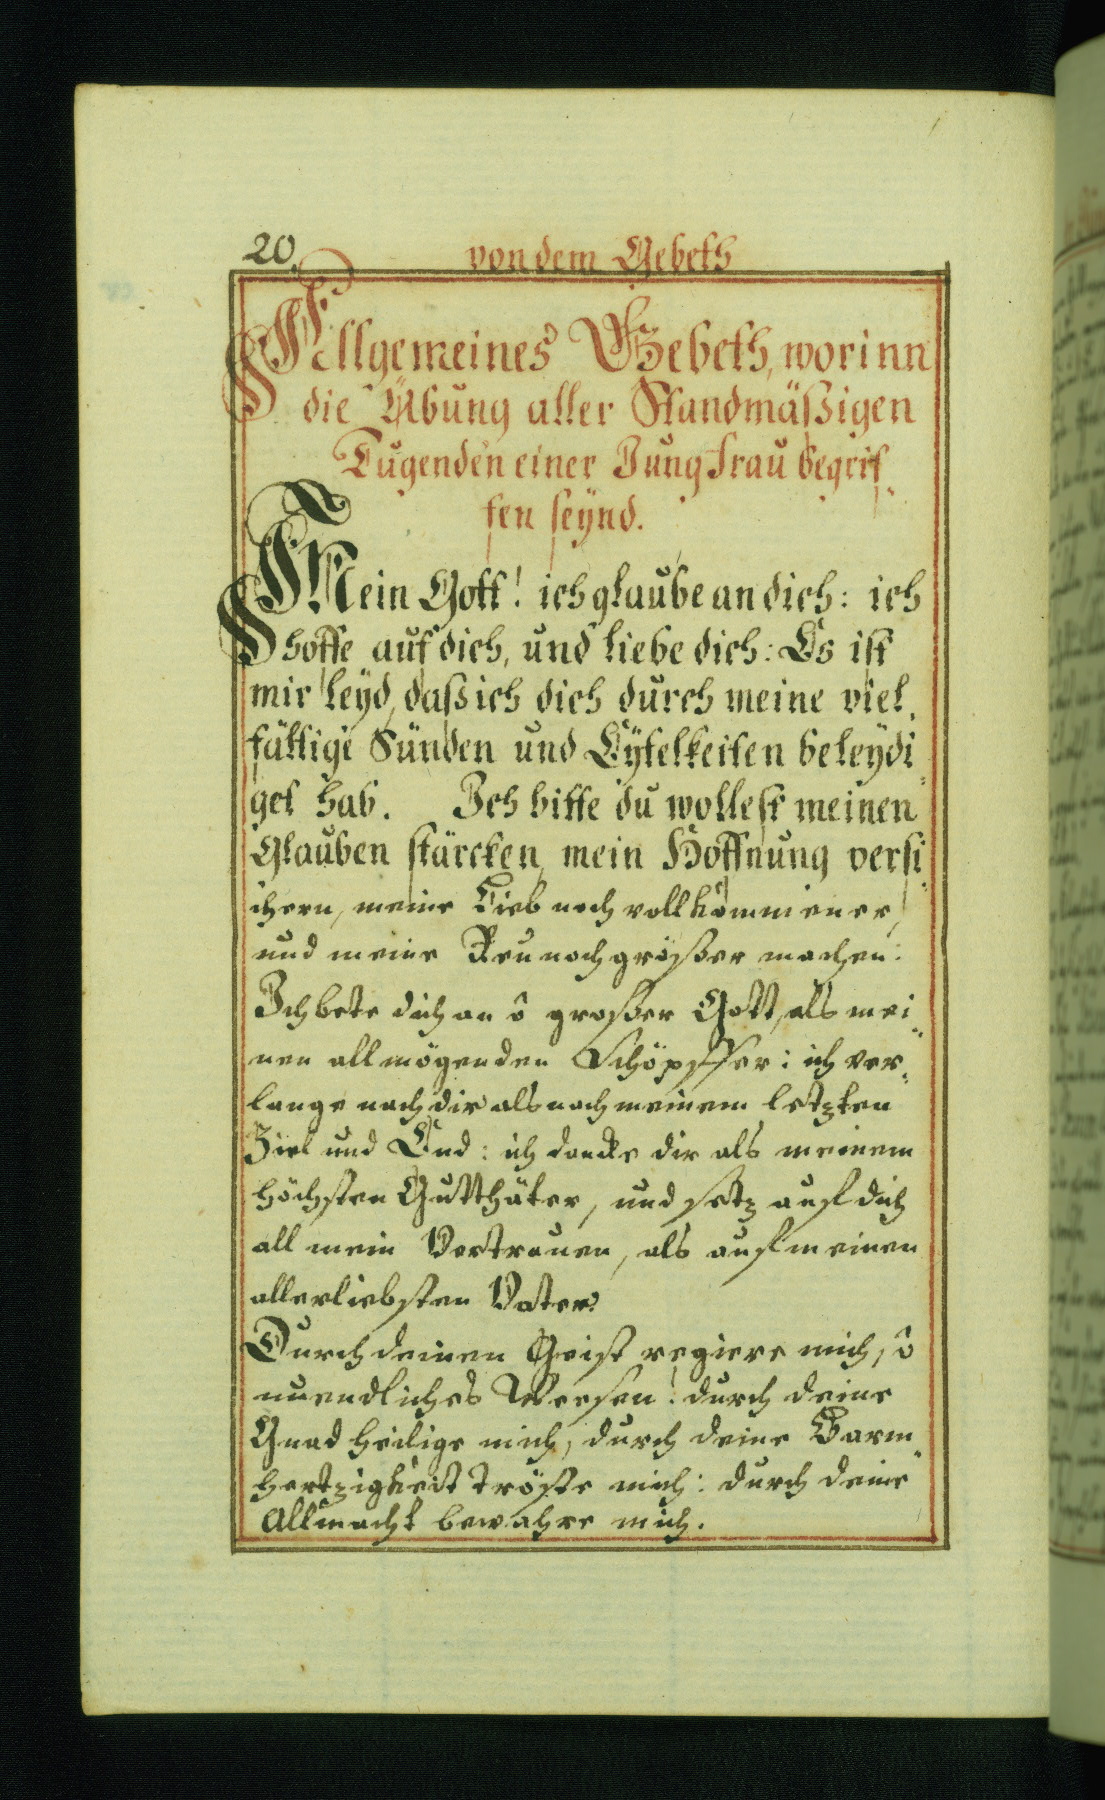 20. von dem Gebeth
Allgemeines Gebeth, worinn
die Übung aller Standmäßigen
Tugenden einer Jungfrau begrif=
fen seÿnd.
Mein Gott! ich glaube an dich: ich
hoffe auf dich, und liebe dich: Es ist
mir leÿd, daß ich dich durch meine viel=
fältige Sünden und Eÿtelkeiten beleÿdi=
get hab. Ich bitte du wollest meinen
Glauben stärcken, mein Hoffnung versi=
chern, meine Lieb noch vollkommener,
und meine Reu noch größer machen:
Ich bete dich an ô großer Gott, als mei=
nen allmögenden Schöpffer: ich ver=
lange nach dir als nach meinem letzten
Ziel und End: ich dancke dir als meinem
höchsten Gutthäter, und setz auf dich
all mein Vertrauen, als auf meinen
allerliebsten Vater.
Durch deinen Geist regiere mich, ô
unendliches Weesen! durch deine
Gnad heilige mich, durch deine Barm=
hertzigkeit tröste mich: durch deine
Allmacht bewahre mich.